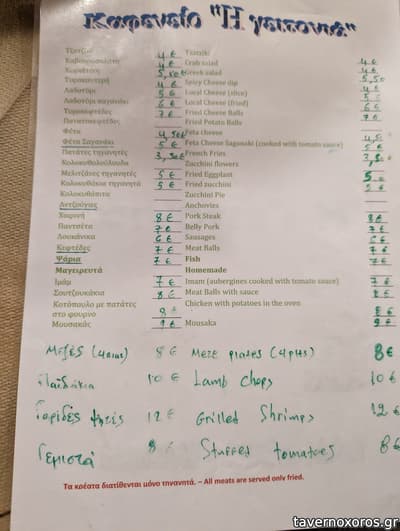 Καφενείο "Η γειτονιά"
Τζατζίκι 4 € Tzatziki 4 €
Καβουροσαλάτα 4 € Crab salad 4 €
Χωριάτικη 5,50€ Greek salad 5,50
Τυροκαυτερή 4 € Spicy Cheese dip 4 €
Λαδοτύρι 5 € Local Cheese (slice) 5
Λαδοτύρι σαγανάκι 6 € Local Cheese (fried) 6 €
Τυροκεφτέδες 7 € Fried Cheese Balls 7 €
Πατατοκεφτέδες Fried Potato Balls
Φέτα 4,50€ Feta cheese 4,50
Φέτα Σαγανάκι 5 € Feta Cheese Saganaki (cooked with tomato sauce) 5 €
Πατάτες τηγανητές 3,50€ French Fries 3,50€
Κολοκυθολούλουδα Zucchini flowers
Μελιτζάνες τηγανητές 5 € Fried Eggplant 5
Κολοκυθάκια τηγανητά 5 € Fried zucchini 5 €
Κολοκυθόπιτα Zucchini Pie
Αντζούγιες Anchovies
Χοιρινή 8 € Pork Steak 8 €
Πανσέτα 7 € Belly Pork 7 €
Λουκάνικα 6 € Sausages 6 €
Κεφτέδες 7 € Meat Balls 7 €
Ψάρια 7 € Fish 7 €
Μαγειρευτά Homemade
Ιμάμ 7 € Imam (aubergines cooked with tomato sauce) 7 €
Σουτζουκάκια 8 € Meat Balls with sauce 8 €
Κοτόπουλο με πατάτες Chicken with potatoes in the oven
στο φουρνο 8 € 8 €
Μουσακάς 9 € Mousaka 9 €
Μεζές 8 € Meze plates (4pers) 8€
Παϊδάκια 10 € Lamb chops 10 €
Γαρίδες ψητές 12 € Grilled Shrimps 12 €
Γεμιστά 8 € Stuffed tomatoes 8€
Τα κρέατα διατίθενται μόνο τηγανητά. – All meats are served only fried.
tavernoxoros.gr